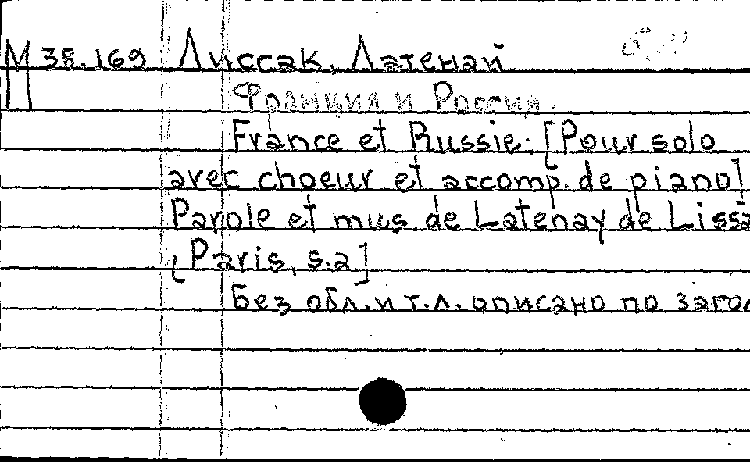 М 38.169 Лиссак, Латенай
П
Франция и Россия.
France et Russie: [Pour solo
avec choeur et accomp. de piano]
Parole et mus. de Latenay de Lissa
[Paris, s.a]
Без обл. и т.л. описано по загол